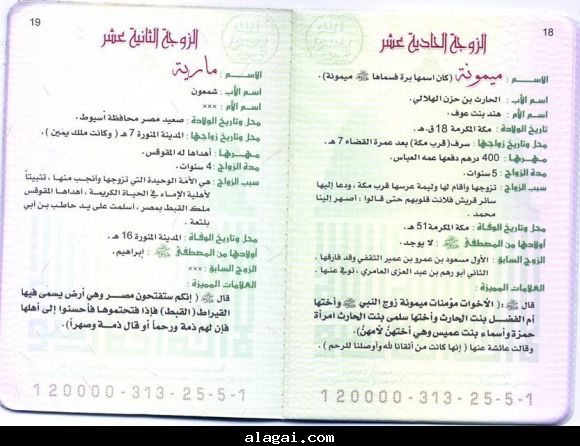 18
الزوجة الحادية عشر
الاسم : ميمونة (كان اسمها برة فسماها ﷺ ميمونة).
اسم الأب : الحارث بن حزن الهلالي.
اسم الأم : هند بنت عوف.
تاريخ الولادة : مكة المكرمة 18 ق.هـ.
محل وتاريخ زواجها : سرف (قرب مكة) بعد عمرة القضاء 7 هـ.
مهرها : 400 درهم دفعها عمه العباس.
مدة الزواج : 5 سنوات.
سبب الزواج : تزوجها وأقام لها وليمة عرسها قرب مكة، ودعا إليها
سائر قريش فلانت قلوبهم حتى قالوا : أصهر إلينا
محمد.
محل وتاريخ الوفاة : مكة المكرمة 51 هـ.
أولادها من المصطفى ﷺ : لا يوجد.
الزوج السابق : الأول مسعود بن عمرو بن عمير الثقفي وقد فارقها.
الثاني أبو رهم بن عبد العزى العامري، توفي عنها.
العلامات المميزة :
قال ﷺ : ( الأخوات مؤمنات ميمونة زوج النبي ﷺ وأختها
أم الفضل بنت الحارث وأختها سلمى بنت الحارث امرأة
حمزة وأسماء بنت عميس وهي أختهن لأمهن).
وقالت عائشة عنها ( إنها كانت من أتقانا لله وأوصلنا للرحم ).
120000-313-25-5-1
19
الزوجة الثانية عشر
الاسم : مارية
اسم الأب : شمعون
اسم الأم : ×××
محل وتاريخ الولادة : صعيد مصر محافظة أسيوط.
محل وتاريخ زواجها : المدينة المنورة 7 هـ ( وكانت ملك يمين ).
مهرها : أهداها له المقوقس.
مدة الزواج : 4 سنوات.
سبب الزواج : هي الأمة الوحيدة التي تزوجها وأنجب منها، تثبيتاً
لأهلية الإماء في الحياة الكريمة، أهداها المقوقس
ملك القبط بمصر، أسلمت على يد حاطب بن أبي
بلتعة.
محل وتاريخ الوفاة : المدينة المنورة 16 هـ.
أولادها من المصطفى ﷺ : إبراهيم.
الزوج السابق : ×××
العلامات المميزة :
قال ﷺ ( إنكم ستفتحون مصر وهي أرض يسمى فيها
القيراط (القبط) فإذا فتحتموها فأحسنوا إلى أهلها
فإن لهم ذمة ورحماً أو قال ذمة وصهراً).
120000-313-25-5-1
alagai.com